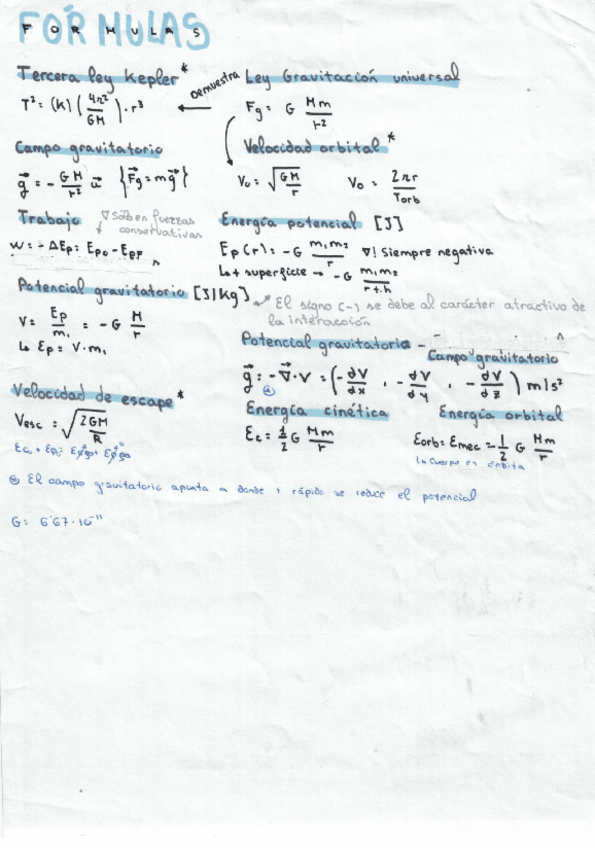 FÓRMULAS
FORMULAS
Tercera ley Kepler *
T² = (K) (4π²/GM) · r³
Demuestra
Ley Gravitación universal
Fg = G Mm/r²
Campo gravitatorio
g⃗ = - GM/r² u⃗ {F⃗g = m g⃗}
Velocidad orbital *
Vo = √(GM/r) Vo = 2πr/Torb
Trabajo
∇ Sólo en fuerzas conservativas
W = - ΔEp = Ep0 - Epf
Energía potencial [J]
Ep(r) = -G m₁m₂/r ∇! Siempre negativa
↳ + superficie → -G m₁m₂/r+h
Potencial gravitatorio [J/kg]
V = Ep/m₁ = -G M/r
↳ Ep = V·m₁
El signo (-) se debe al carácter atractivo de
la interacción
Potencial gravitatorio -
Campo gravitatorio
g⃗ = -∇⃗·V = (-dV/dx , -dV/dy , -dV/dz) m/s²
Velocidad de escape *
Vesc = √(2GM/R)
Energía cinética
Ec = 1/2 G Mm/r
Energía orbital
Eorb = Emec = -1/2 G Mm/r
↳ Cuerpo en órbita
El campo gravitatorio apunta a donde + rápido se reduce el potencial
G = 6'67·10⁻¹¹